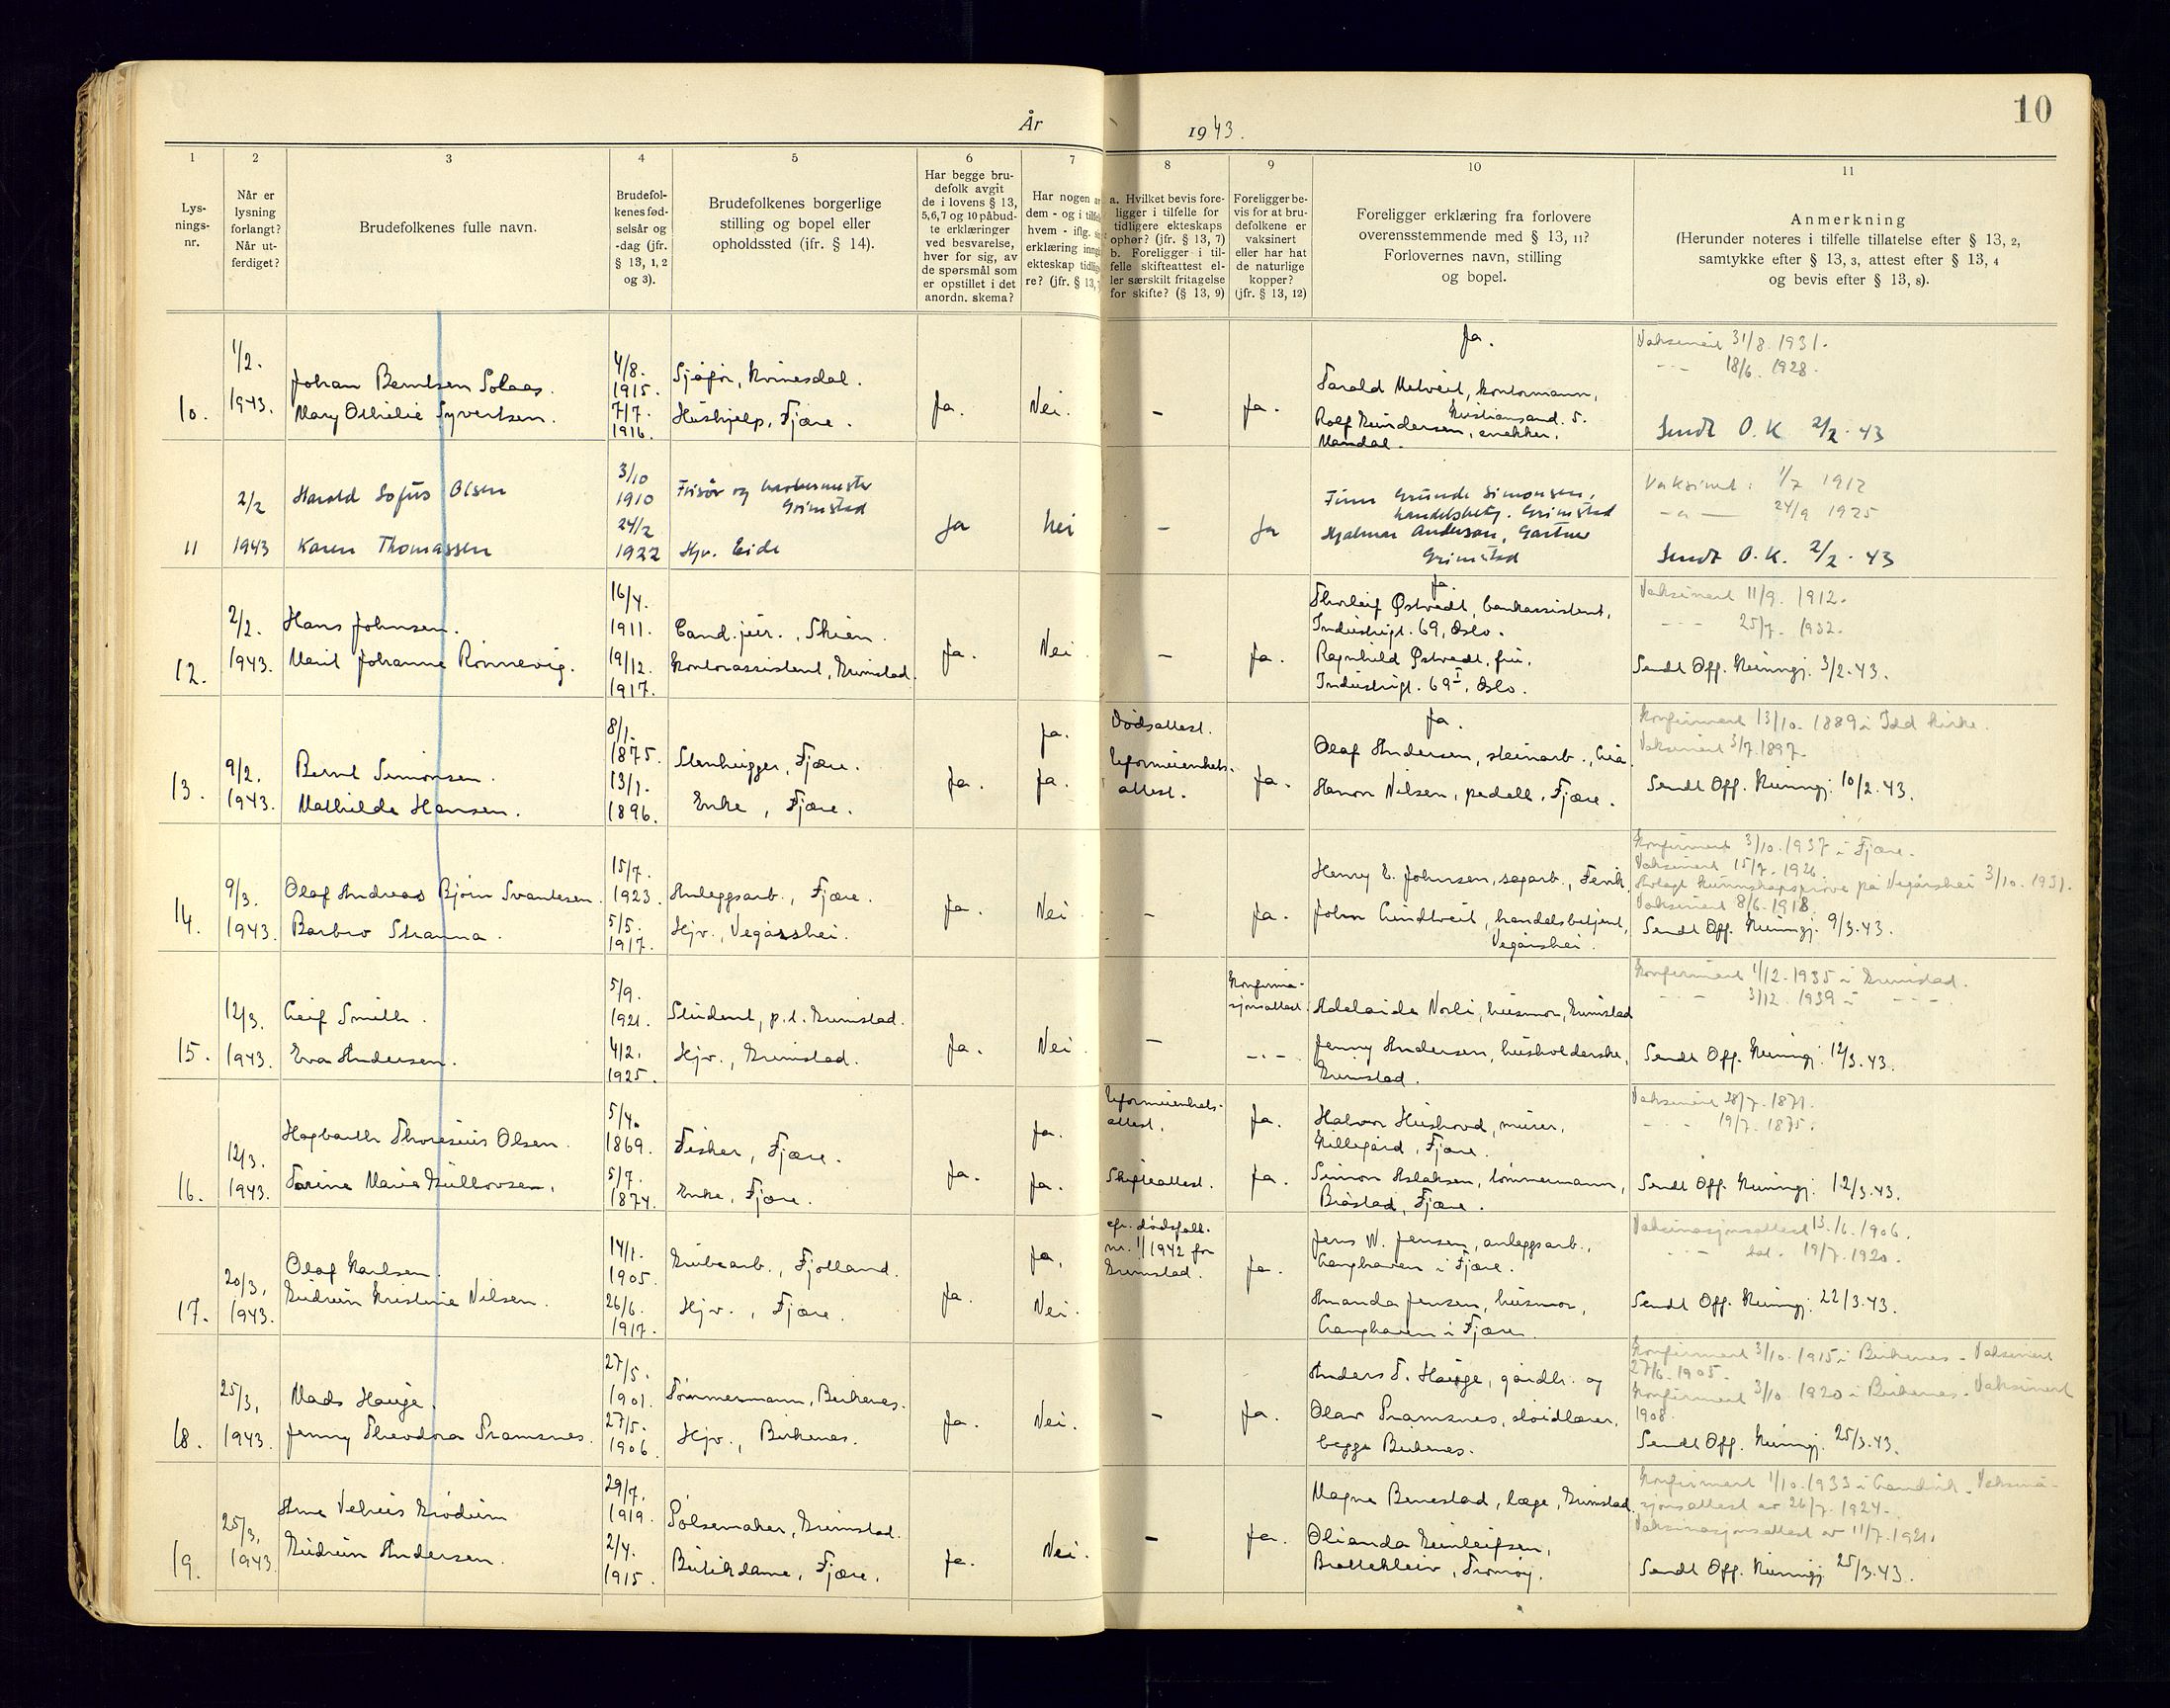 10
År 1943.
1 2 3 4 5 6 7 8 9 10 11
Lys-
nings-
nr.
Når er
lysning
forlangt?
Når ut-
ferdiget?
Brudefolkenes fulle navn.
Brudefol-
kenes fød-
selsår og
-dag (jfr.
§ 13, 1, 2
og 3).
Brudefolkenes borgerlige
stilling og bopel eller
opholdssted (jfr. § 14).
Har begge bru-
defolk avgit
de i lovens § 13,
5,6,7 og 10 påbud-
te erklæringer
ved besvarelse,
hver for sig, av
de spørsmål som
er opstillet i det
anordn. skema?
Har nogen
dem - og i
hvem - iflg.
erklæring
ekteskap
re? (jfr. § 13,
a. Hvilket bevis fore-
ligger i tilfelle for
tidligere ekteskaps
ophør? (jfr. § 13, 7)
b. Foreligger i til-
felle skifteattest el-
ler særskilt fritagelse
for skifte? (§ 13, 9)
Foreligger be-
vis for at bru-
defolkene er
vaksinert
eller har hat
de naturlige
kopper?
(jfr. § 13, 12)
Foreligger erklæring fra forlovere
overensstemmende med § 13, 11?
Forlovernes navn, stilling
og bopel.
Anmerkning
(Herunder noteres i tilfelle tillatelse efter § 13, 2,
samtykke efter § 13, 3, attest efter § 13, 4
og bevis efter § 13, 8).
10.
1/2.
1943.
Johan Berntsen Solaas.
Mary Othilie Syvertsen.
4/8.
1915.
7/7.
1916.
Sjåfør, Kvinesdal.
Hushjelp, Fjære.
Ja.
Nei.
-
Ja.
Ja.
Tarald Netveit, kontormann,
Kristiansand. S.
Rolf Gundersen, snekker,
Mandal.
Vaksinert 31/8. 1931.
- - 18/6. 1928.
Sendt O. K 2/2. 43
11
2/2
1943
Harald Sofus Olsen
Karen Thomassen
3/10
1910
24/2
1922
Frisør og barbermester
Grimstad
Hjv. Eide
Ja
Nei
-
Ja
Finn Grunde Simonsen,
handelsbetj. Grimstad
Hjalmar Anderson, Gartner
Grimstad
Vaksinert: 1/7 1912
- " - 24/9 1925
Sendt O. K. 2/2. 43
12.
2/2.
1943.
Hans Johnsen.
Marit Johanne Rønnevig.
16/4.
1911.
19/12.
1917.
Cand. jur., Skien.
Kontorassistent, Grimstad.
Ja.
Nei.
-
Ja.
Ja.
Thorleif Østvedt, bankassistent,
Industrigt. 69, Oslo.
Ragnhild Østvedt, fru,
Industrigt. 69 I, Oslo.
Vaksinert 11/9. 1912.
- - - 25/7. 1932.
Sendt Off. Kunngj. 3/2. 43.
13.
9/2.
1943.
Bernt Simonsen.
Mathilde Hansen.
8/1.
1875.
13/1.
1896.
Stenhugger, Fjære.
Enke, Fjære.
Ja.
Ja.
Ja.
Dødsattest.
Uformuenhets-
attest.
Ja.
Ja.
Olaf Andersen, steinarb.,
Hanon Nilsen, pedell, Fjære.
Konfirmert 13/10. 1889 i Idd kirke.
Vaksinert 3/7. 1897.
Sendt Off. Kunngj. 10/2. 43.
14.
9/3.
1943.
Olaf Andreas Bjørn Svantesen.
Barbro Stranna.
15/7.
1923.
5/5.
1917.
Anleggsarb., Fjære.
Hjv., Vegårshei.
Ja.
Nei
-
Ja.
Henry E. Johnsen, sagarb., Fevik.
John Lindtveit, handelsbetjent,
Vegårshei.
Konfirmert 3/10. 1937 i Fjære.
Vaksinert 15/7. 1926.
Avlagt kunnskapsprøve på Vegårshei 3/10. 1931.
Vaksinert 8/6. 1918.
Sendt Off. Kunngj. 9/3. 43.
15.
12/3.
1943.
Leif Smith.
Eva Andersen.
5/9.
1921.
4/2.
1925.
Student, p. t. Grimstad.
Hjv., Grimstad.
Ja.
Nei
-
Konfirma-
sjonsattest.
- " -
Adelaide Norli, husmor, Grimstad
Jenny Andersen, husholderske,
Grimstad.
Konfirmert 1/12. 1935 i Grimstad.
- - 3/12. 1939 i - - -
Sendt Off. Kunngj. 12/3. 43.
16.
12/3.
1943.
Hagbarth Thoresius Olsen.
Tarine Marie Gullovsen.
5/4.
1869.
5/7.
1874.
Fisker, Fjære.
Enke, Fjære.
Ja.
Ja.
Ja.
Uformuenhets-
attest.
Skifteattest.
Ja.
Ja.
Halvor Hushovd, murer,
Killegård, Fjære.
Simon Aslaksen, tømmermann,
Bråstad, Fjære.
Vaksinert 28/7. 1871.
- - - 19/7. 1875.
Sendt Off. Kunngj. 12/3. 43.
17.
20/3.
1943.
Olaf Karlsen.
Gudrun Kristine Nilsen.
14/1.
1905.
26/6.
1917.
Grubearb., Fjotland.
Hjv., Fjære.
Ja.
Ja.
Nei.
cfr. dødsfall.
nr. 1/1942 for
Grimstad.
Ja.
Jens W. Jensen, anleggsarb.,
Langhaven i Fjære.
Amanda Jensen, husmor,
Langhaven i Fjære.
Vaksinasjonsattest 13./6. 1906.
- - dat. 19/7. 1920.
Sendt Off. Kunngj. 22/3. 43.
18.
25/3.
1943.
Mads Hauge.
Jenny Theodora Tramsnes.
27/5.
1901.
27/5.
1906.
Tømmermann, Birkenes.
Hjv., Birkenes.
Ja.
Nei.
-
Ja.
Anders T. Hauge, gårdbr. og
Olav Tramsnes, sløidlærer,
begge Birkenes.
Konfirmert 3/10. 1915 i Birkenes - Vaksinert
27/6. 1905.
Konfirmert 3/10. 1920 i Birkenes. Vaksinert
1908.
Sendt Off. Kunngj. 25/3. 43.
19.
25/3.
1943.
Arne Velius Brødum
Gudrun Andersen.
29/7.
1919.
2/4.
1915.
Pølsemaker, Grimstad.
Butikdame, Fjære.
Ja.
Nei.
-
Ja.
Magne Benestad, læge, Grimstad.
Olianda Gunleifsen,
Brattekleiv, Tromøy.
Konfirmert 1/10. 1933 i Landvik. Vaksina-
sjonsattest av 26/7. 1924.
Vaksinasjonsattest av 11/7. 1921.
Sendt Off. Kunngj. 25/3. 43.